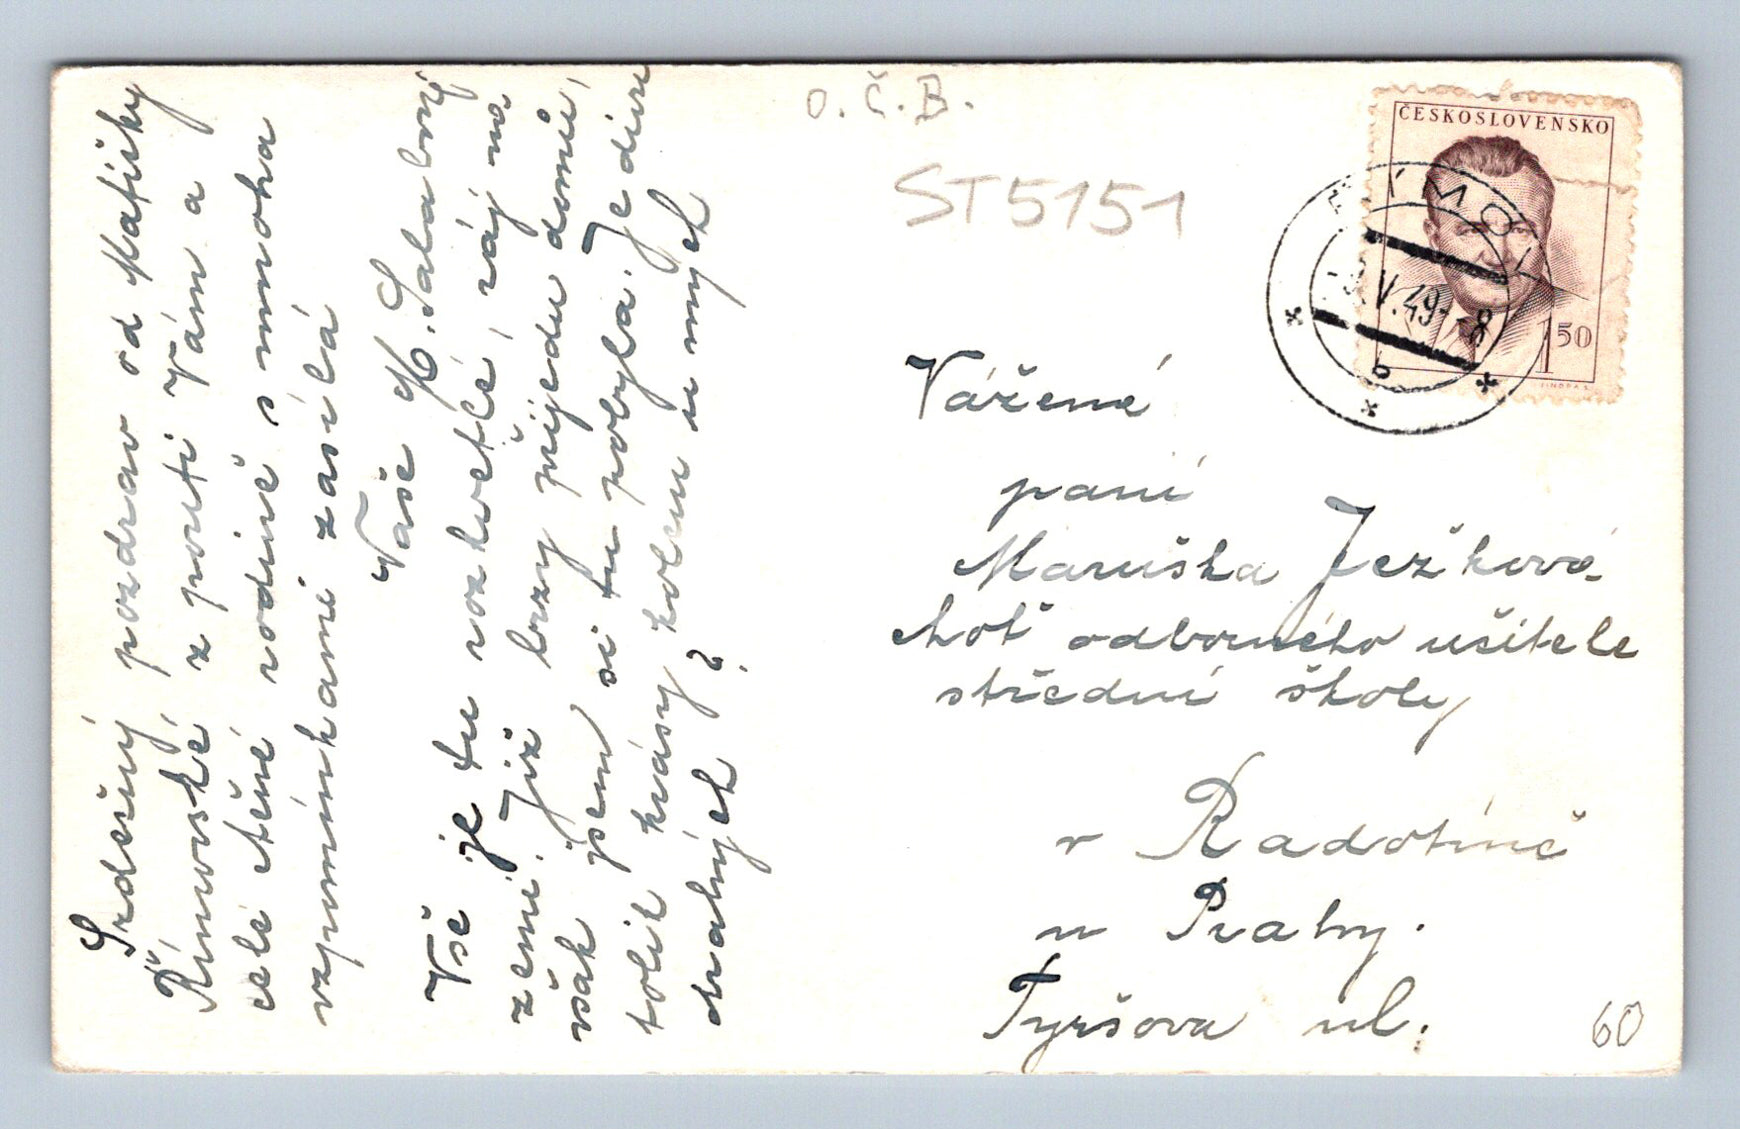 Srdečný pozdrav od Matičky
Římovské z pouti Vám a
celé ctěné rodině s mnoha
vzpomínkami zasílá
Vaše M. Salabová
Vše je tu rozkvetlé, ráj na
zemi. Již brzy přijedu domů,
však jsem si tu pobyla. Je div
tolik krásy kolem u mých
drahých?
O. Č. B.
ST5151
ČESKOSLOVENSKO
1 50
ŘÍMOV
V. 49 - 8
b
Vážená
paní
Maruška Ježková
choť odborného učitele
střední školy
v Radotíně
u Prahy.
Tyršova ul.
60